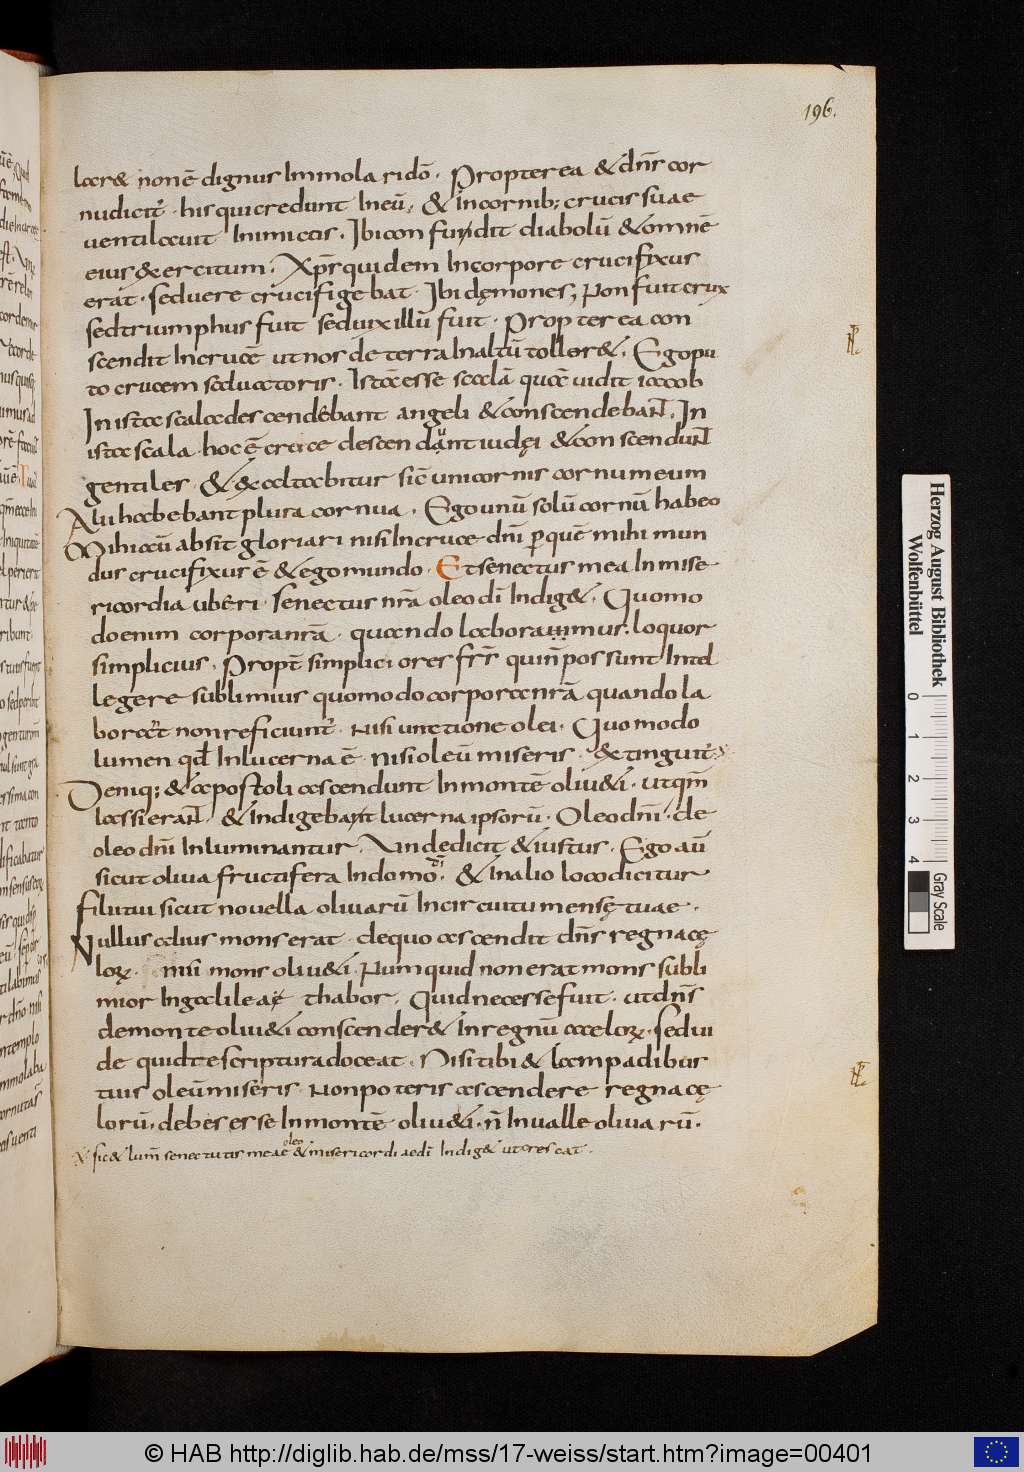 196.
lacr& non ē dignus Immolari dō. Propterea & dn̄s cor
nu dicit̄ his qui credunt In eū; & In cornib; crucis suae
ventilavit Inimicis. Ibi confundit diabolū & omnē
eius &ercitum. Xp̄s quidem In corpore crucifixus
erat. sed uere crucifigebat Ibi dęmones; Non fuit crux
sed triumphus fuit sed uixillū fuit. Propterea con
scendit In crucē ut nos de terra In altū toller&. Ego pu
to crucem saluatoris. Istā esse scalā quā uidit iacob
In ista scala descendebant angeli & conscendebant. In
ista scala. hoc ē cruce descendunt iudęi & conscendunt
gentiles. & &altabitur sic unicornis cornu meum
Alii habebant plura cornua. Ego unū solū cornū habeo
Mihi aū absit gloriari nisi In cruce dn̄i per quē mihi mun
dus crucifixus ē & ego mundo. Et senectus mea In mise
ricordia uberi. senectus nr̄a oleo dī Indig&. Quomo
do enim corpora nr̄a. quando laboramus. loquor
simplicius. Propt̄ simpliciores fr̄s qui n̄ possunt Intel
legere sublimius quomodo corpora nr̄a quando la
borat̄ non reficiunt̄. Nisi unctione olei. Quomodo
lumen qd̄ In lucerna ē. nisi oleū miseris. &tinguit̄
Deniq; & apostoli ascendunt In montē oliu&i. ut qm̄
lassi erant. & Indigebant lucerna ipsorū. Oleo dn̄i. de
oleo dn̄i Inluminantur. Unde dicit & iustus. Ego aū
sicut oliua fructifera In domo dī. & In alio loco dicitur
filii tui sicut nouella oliuarū In circuitu mensę tuae.
Nullus alius mons erat. de quo ascendit dn̄s regna cę
lorꝝ. nisi mons oliu&i. Numquid non erat mons subli
mior In galilea thabor. Quid necesse fuit. ut dn̄s
de monte oliu&i conscender& In regnū caelorꝝ. sed ui
de quid te scriptura doceat. Nisi tibi & lampadibus
tuis oleū miseris. Non poteris ascendere regna cę
lorū. debes esse In montē oliu&i. n̄ In ualle oliuarū.
sic & lum̄ senectutis meae oleo & misericordiae dī Indig& ut crescat.
Herzog August Bibliothek
Wolfenbüttel
0 1 2 3 4
Gray Scale
© HAB http://diglib.hab.de/mss/17-weiss/start.htm?image=00401